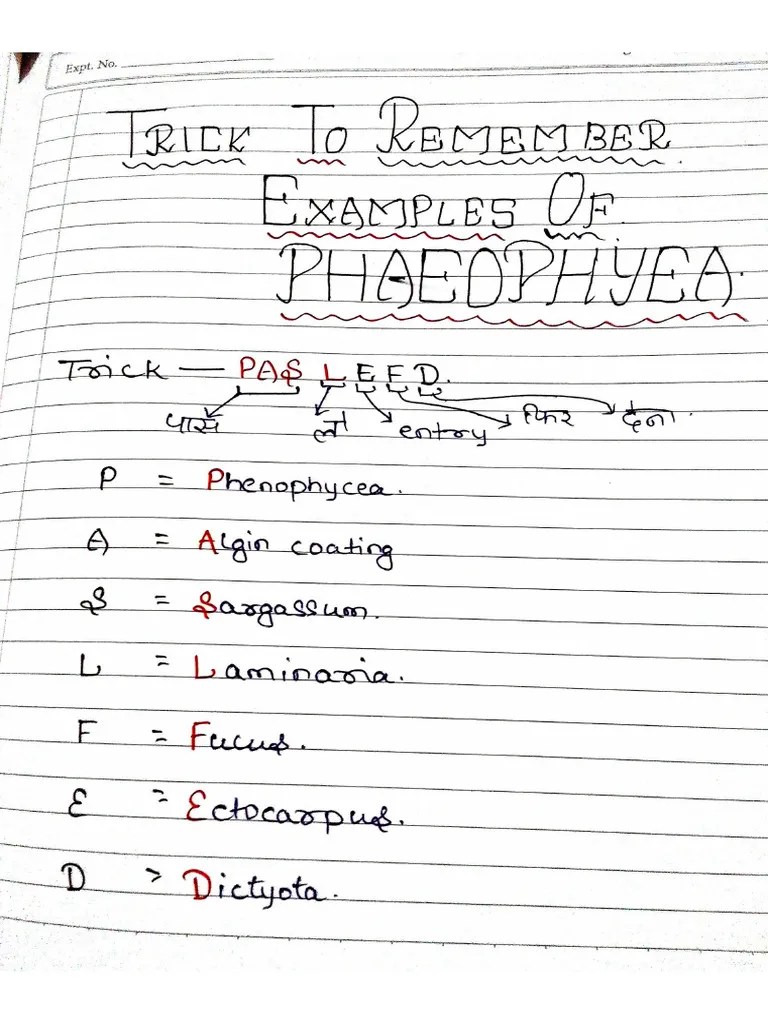 Expt. No.
TRICK TO REMEMBER
EXAMPLES OF
PHAEOPHYEA.
Trick — PAS L E F D.
पास लो entry फिर देना.
P = Phenophycea.
A = Algin coating
S = Sargassum.
L = Laminaria.
F = Fucus.
E = Ectocarpus.
D > Dictyota.